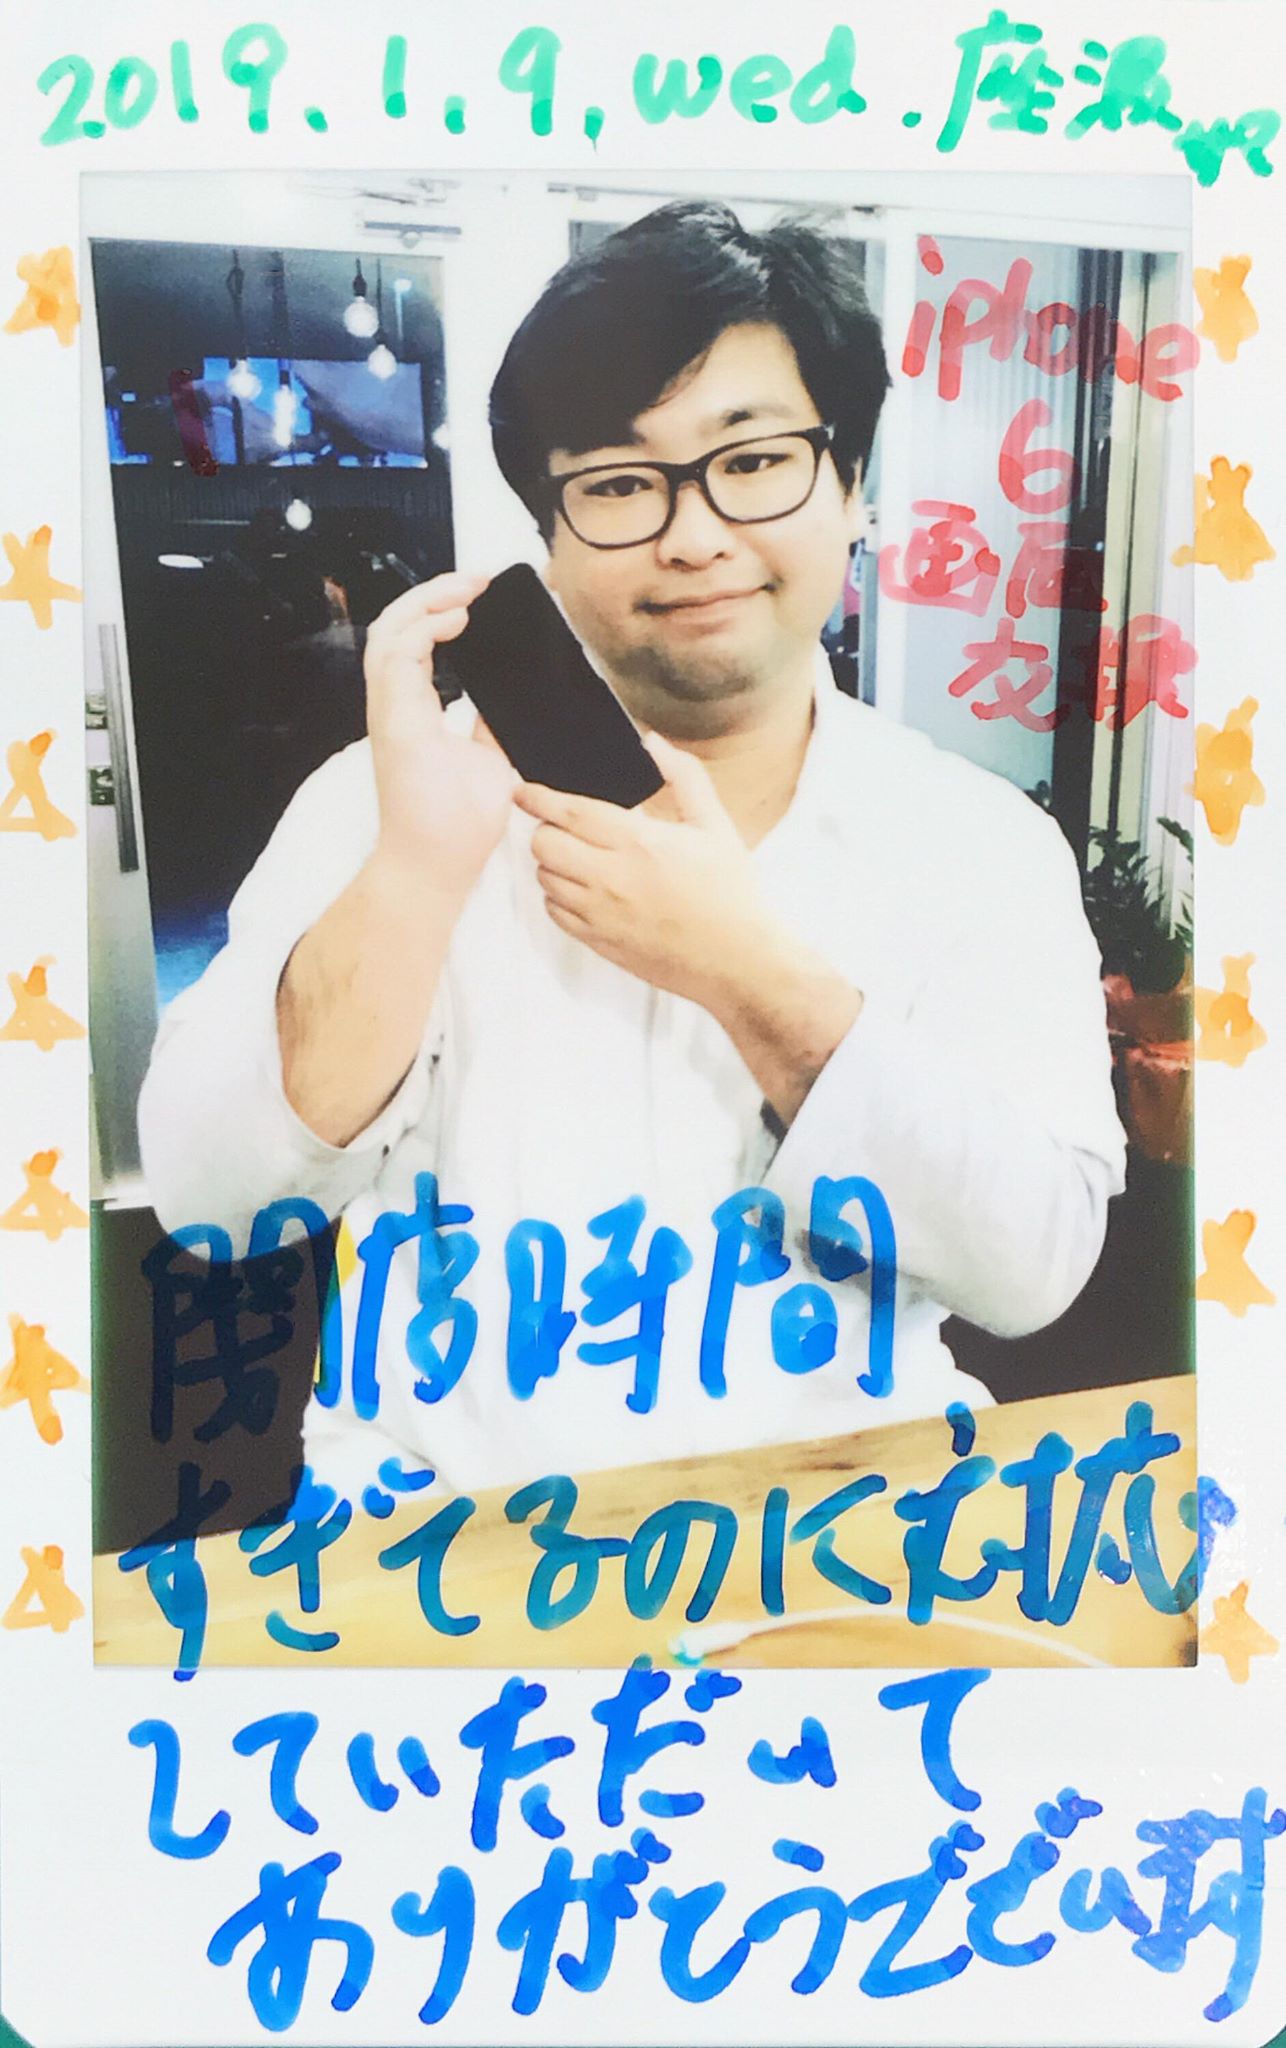 2019.1.9.wed.座波
iphone
6
画面
交換
閉店時間
すぎてるのに対応
していただいて
ありがとうございます